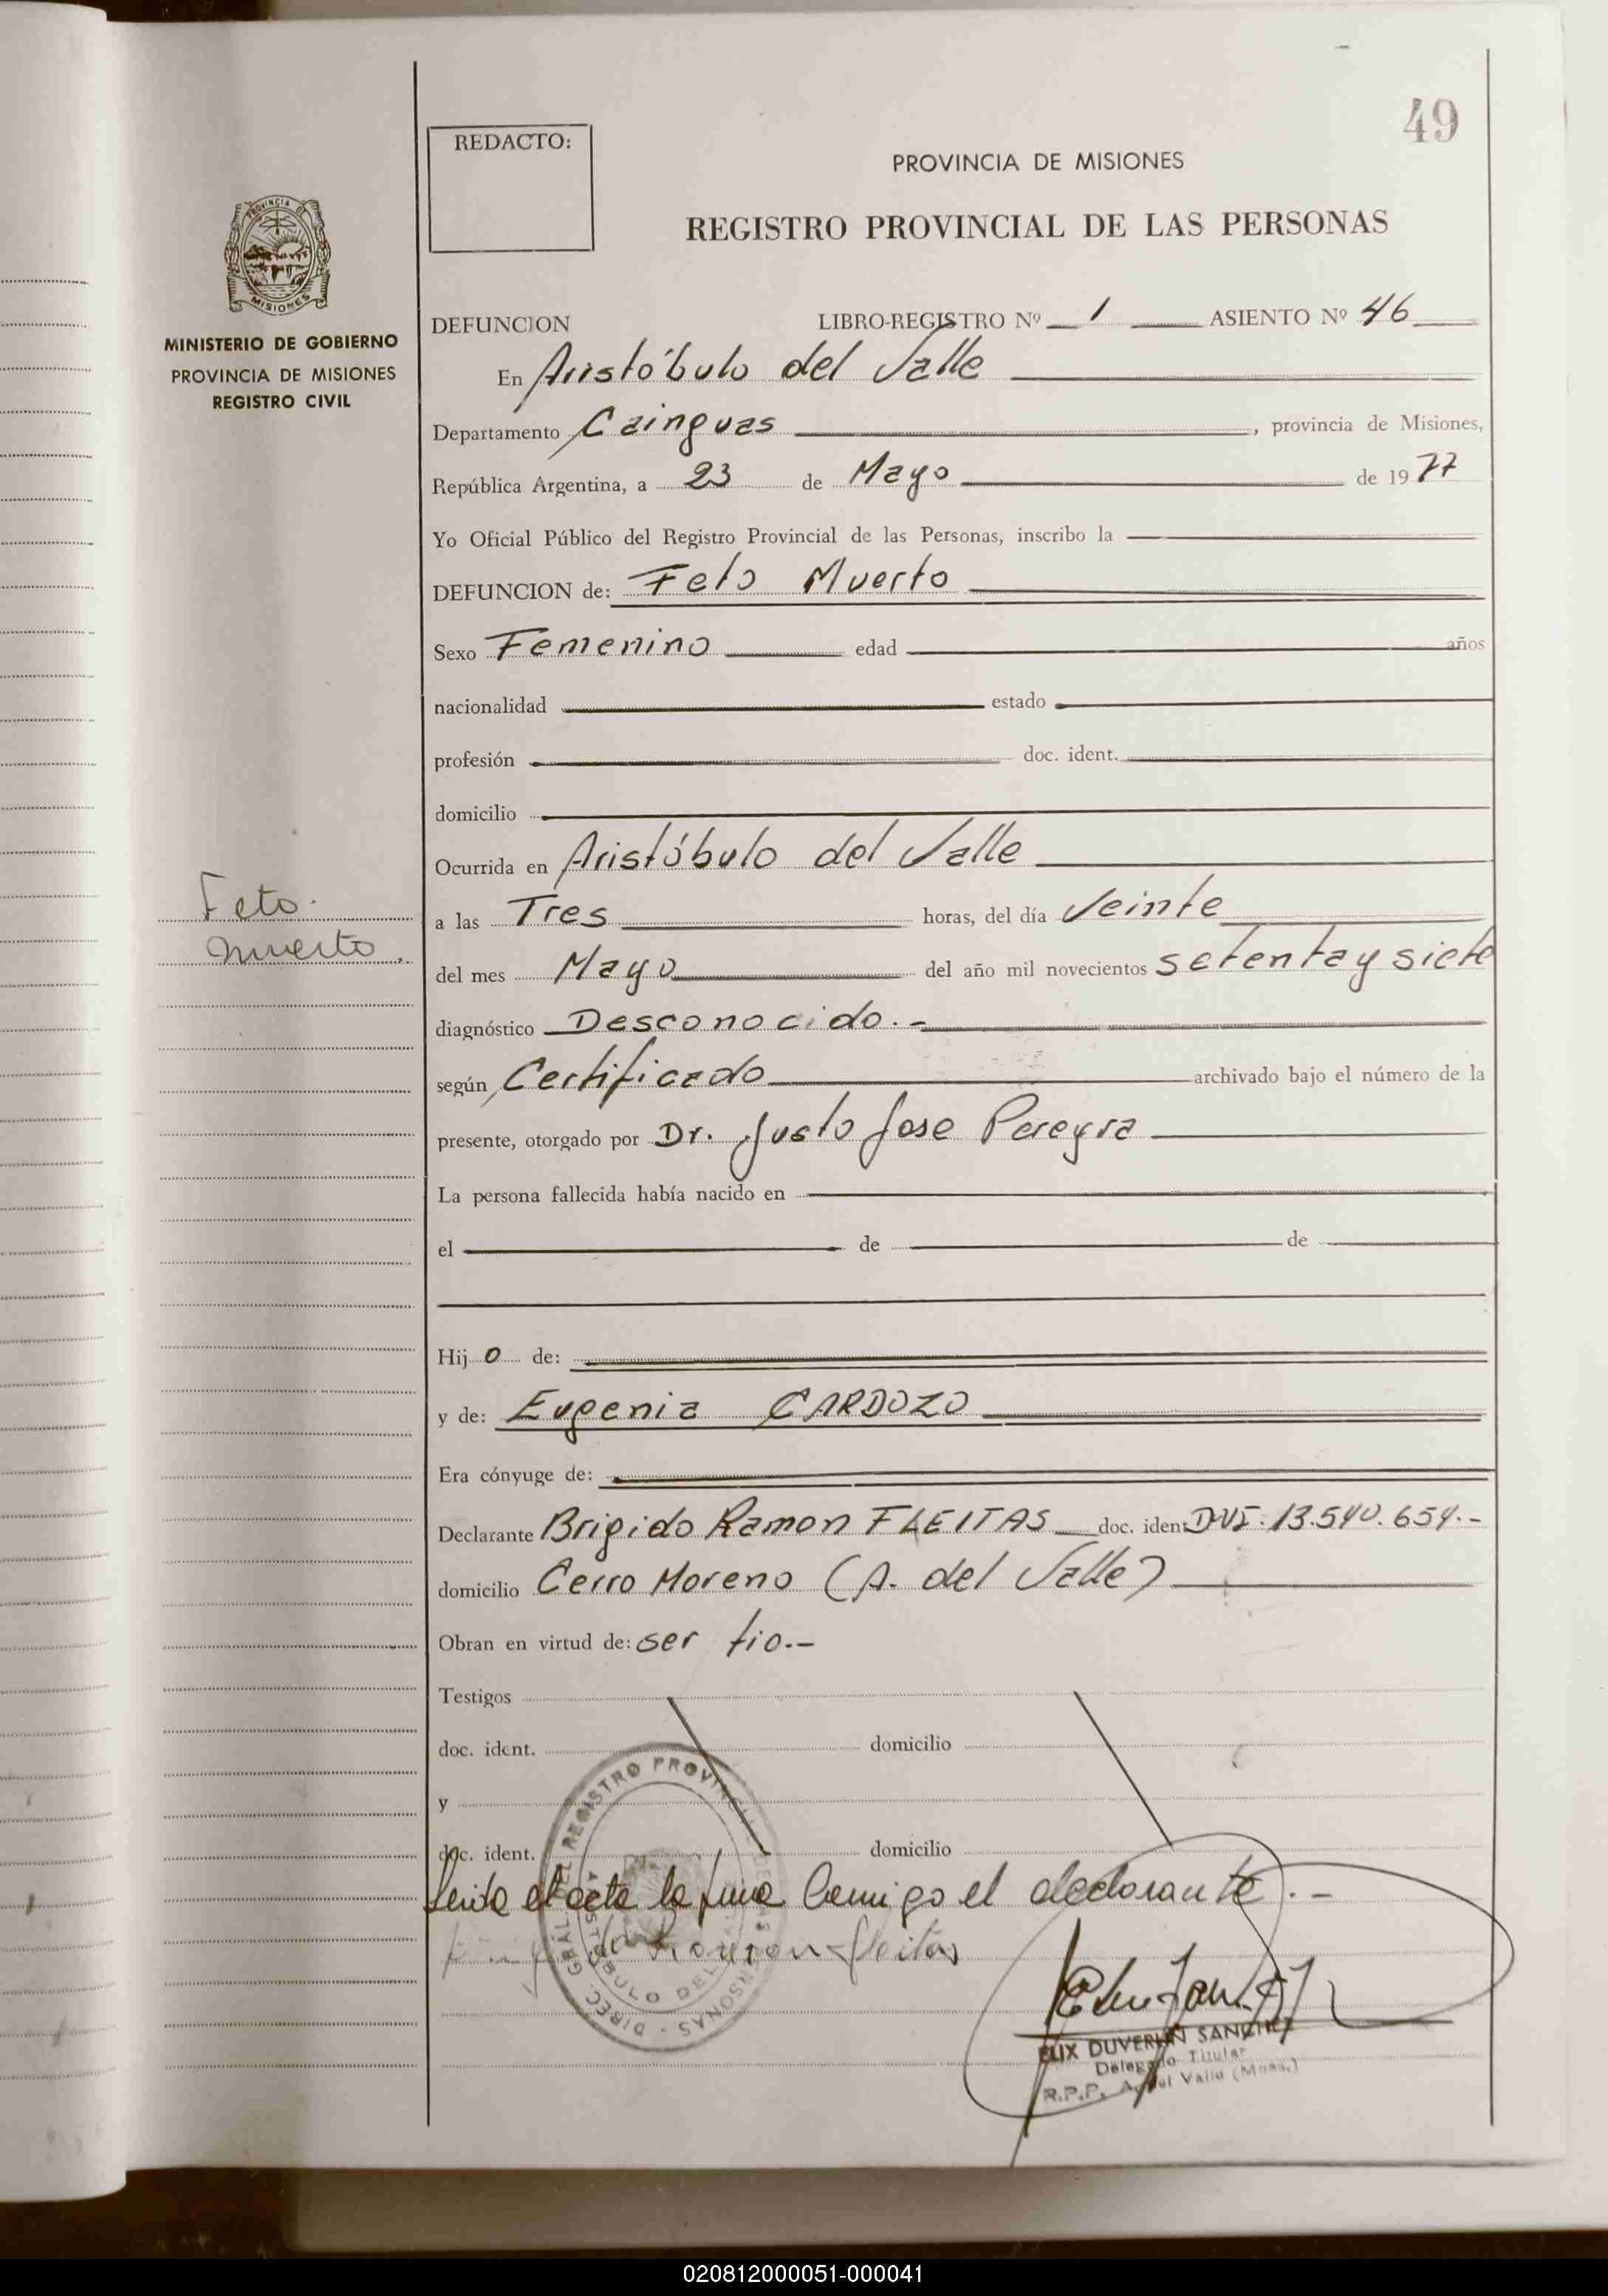 49
REDACTO:
PROVINCIA DE MISIONES
REGISTRO PROVINCIAL DE LAS PERSONAS
PROVINCIA D
MISIONES
MINISTERIO DE GOBIERNO
PROVINCIA DE MISIONES
REGISTRO CIVIL
DEFUNCION LIBRO-REGISTRO Nº 1 ASIENTO Nº 46
En Aristóbulo del Valle
Departamento Cainguas, provincia de Misiones,
República Argentina, a 23 de Mayo de 1977
Yo Oficial Público del Registro Provincial de las Personas, inscribo la
DEFUNCION de: Feto Muerto
Sexo Femenino edad años
nacionalidad estado
profesión doc. ident.
domicilio
Ocurrida en Aristóbulo del Valle
Feto.
muerto.
a las Tres horas, del día Veinte
del mes Mayo del año mil novecientos setenta y siete
diagnóstico Desconocido.-
según Certificado archivado bajo el número de la
presente, otorgado por Dr. Justo Jose Pereyra
La persona fallecida había nacido en
el de de
Hijo de:
y de: Eugenia CARDOZO
Era cónyuge de:
Declarante Brigido Ramon FLEITAS doc. ident. DNI. 13.540.654.-
domicilio Cerro Moreno (A. del Valle)
Obran en virtud de: ser tio.-
Testigos
doc. ident. domicilio
y
doc. ident. domicilio
Leida el acta la firma Comigo el declarante.-
Ramon fleitas
REGISTRO PROVINCIAL DE LAS PERSONAS - DIREC. GRAL.
ARISTOBULO DEL
ELIX DUVERLIN SANCHEZ
Delegado Titular
R.P.P. A. del Valle (Mnes.)
020812000051-000041